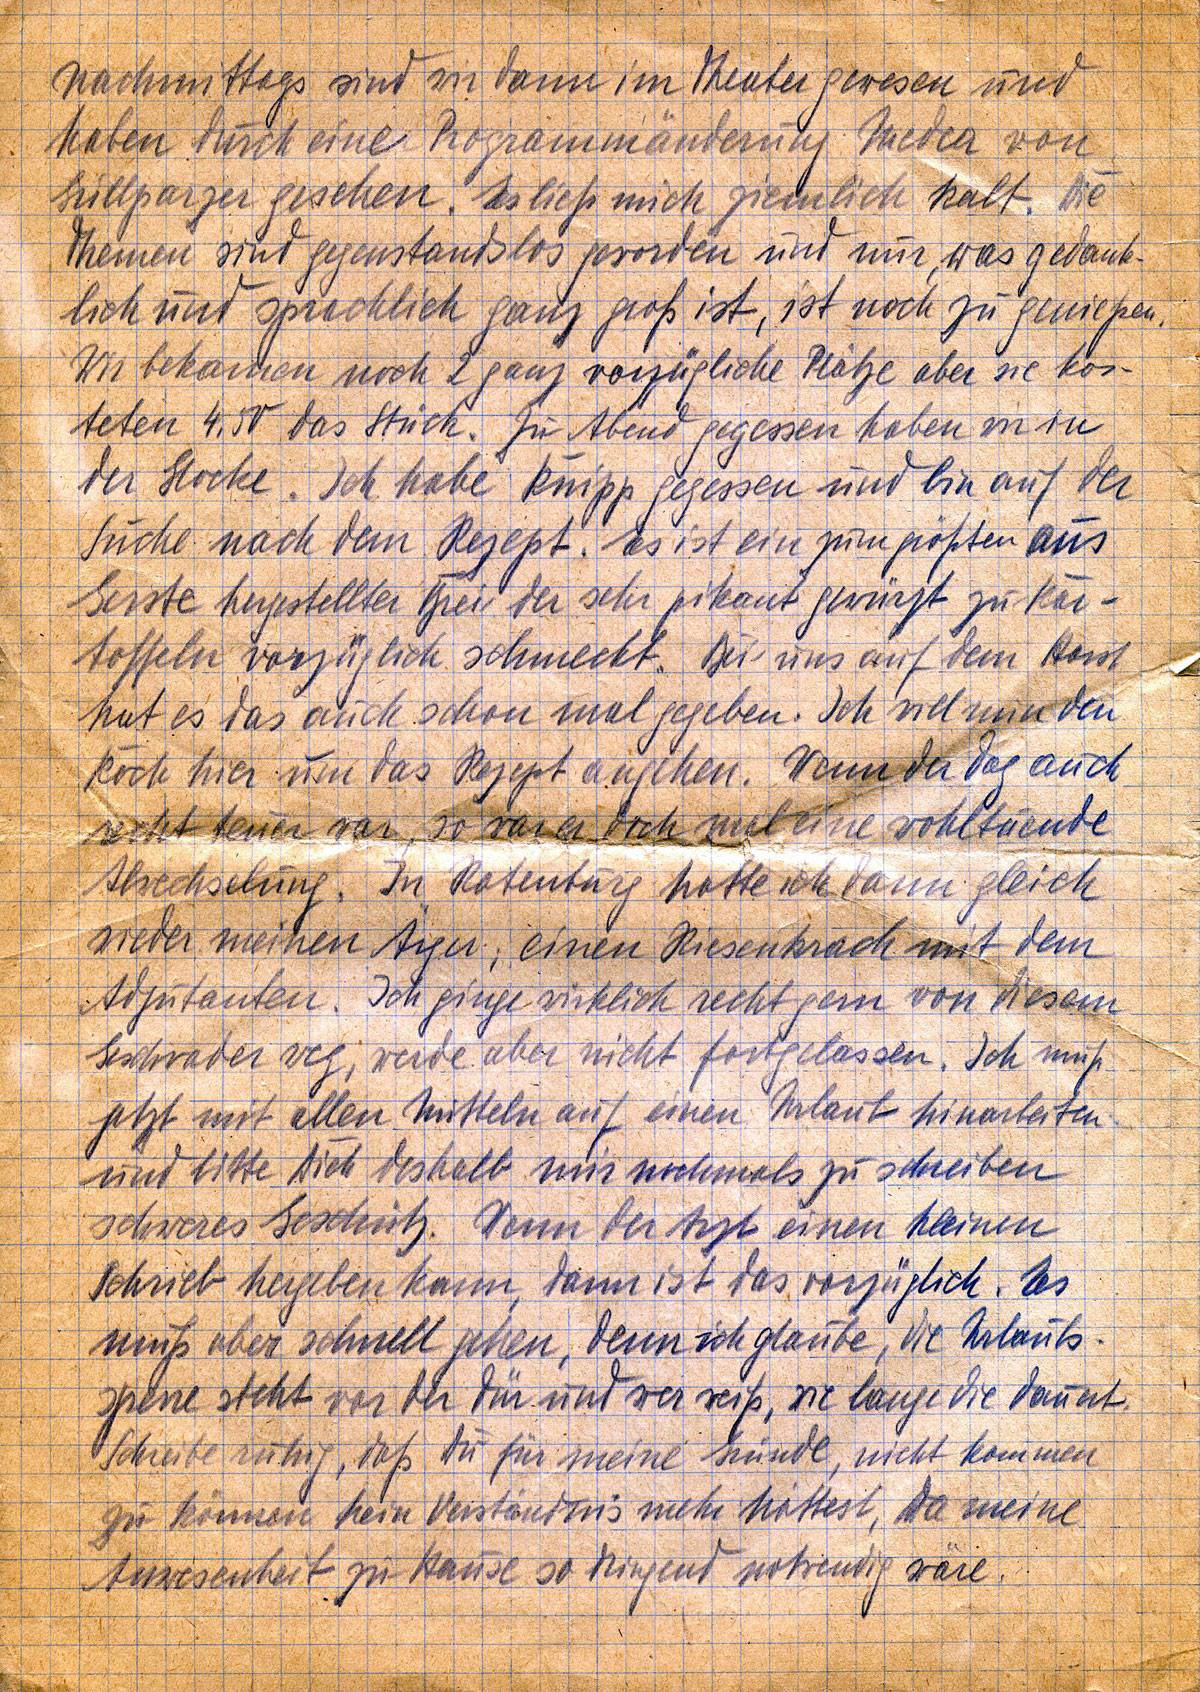 Nachmittags sind wir dann im Theater gewesen und
haben durch eine Programmänderung Medea von
Grillparzer gesehen. Es ließ mich ziemlich kalt. Die
Themen sind gegenstandslos geworden und nur, was gedank-
lich und sprachlich ganz groß ist, ist noch zu genießen.
Wir bekamen noch 2 ganz vorzügliche Plätze aber sie kos-
teten 4.50 das Stück. Zu Abend gegessen haben wir in
der Glocke. Ich habe Knipp gegessen und bin auf der
Suche nach dem Rezept. Es ist ein zum größten aus
Gerste hergestellter Brei der sehr pikant gewürzt zu Kar-
toffeln vorzüglich schmeckt. Bei uns auf dem Horst
hat es das auch schon mal gegeben. Ich will nun den
Koch hier um das Rezept angehen. Wenn der Tag auch
recht teuer war, so war er doch mal eine wohltuende
Abwechselung. In Rotenburg hatte ich dann gleich
wieder meinen Ärger, einen Riesenkrach mit dem
Adjutanten. Ich ginge wirklich recht gern von diesem
Geschwader weg, werde aber nicht fortgelassen. Ich muß
jetzt mit allen Mitteln auf einen Urlaub hinarbeiten
und bitte Dich deshalb mir nochmals zu schreiben
schweres Geschütz. Wenn der Arzt einen kleinen
Schrieb hergeben kann, dann ist das vorzüglich. Es
muß aber schnell gehen, denn ich glaube, die Urlaubs-
sperre steht vor der Tür und wer weiß, wie lange die dauert.
Schreibe ruhig, daß Du für meine Gründe, nicht kommen
zu können kein Verständnis mehr hättest, da meine
Anwesenheit zu Hause so dringend notwendig wäre.